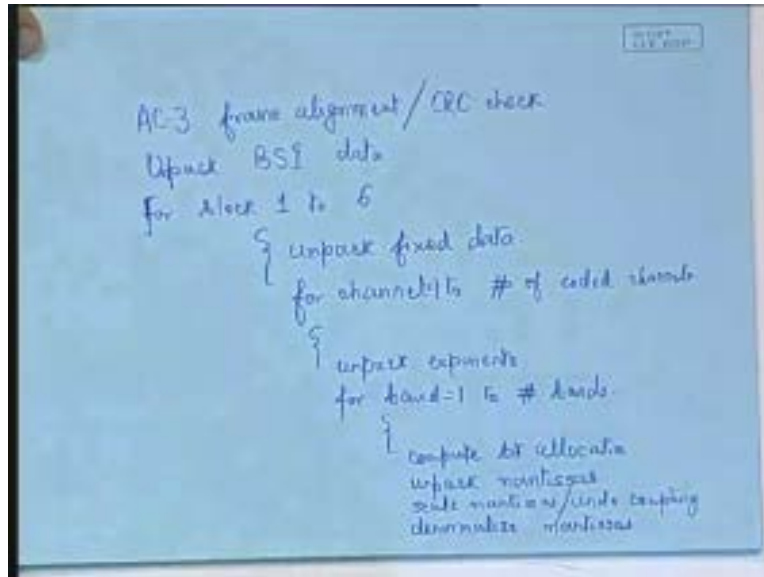 AC-3 frame alignment/CRC check
Unpack BSI data
for block 1 to 6
{ unpack fixed data
for channel=1 to # of coded channels
{
unpack exponents
for band=1 to # bands
{
compute bit allocation
unpack mantissas
scale mantissas/undo coupling
denormalize mantissas